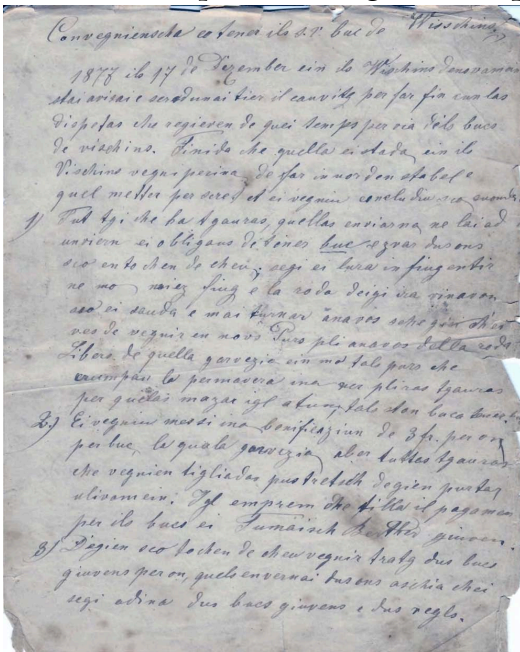 Convegnienscha co tener ils s.v. bucs de Vischins.
1877 ils 17 de Dezember ein ils Vischins denovamein
stai avisai e serodunai tier il cauvitg per far fin cun las
dispetas che regieren de quei temps per via dils bucs
de vischins. Finida che quella ei stada, ein ils
Vischins vegni perina, de far in uorden stabel e
quel metter per scret et ei vegniu concludiu sco suonda:
1) Tut tgi che ha tgauras, quellas enviarna ne lai ad
unviern ei obligaus de tener buc
sco entochen de cheu, segi ei lura in fiug entir
ne mo miez fiug e la roda deigi ira vinavon
sco ei sauda e mai turnar anavos
de vegnir en novs Purs pli anavos della roda
Libers de quella gravezia ein mo tals purs che
crumpan la permavera ina ner pliras tgauras
per quellas mazar igl atun, tals ston bucs
2.) Ei vegniu messi ina bonificaziun de 3 fr. per onn
per buc, la quala gravezia aber tuttas tgauras
che vegnien tigliadas pustretsch degien purtar
ulivamein. Igl emprem che tilla il pagamen
per ils bucs ei Tumaisch Berther giuven.
3) Degien sco tochen de cheu vegnir tratg dus bucs
giuvens per on, quels envernai dus ons aschia chei
segi adina dus bucs giuvens e dus vegls.